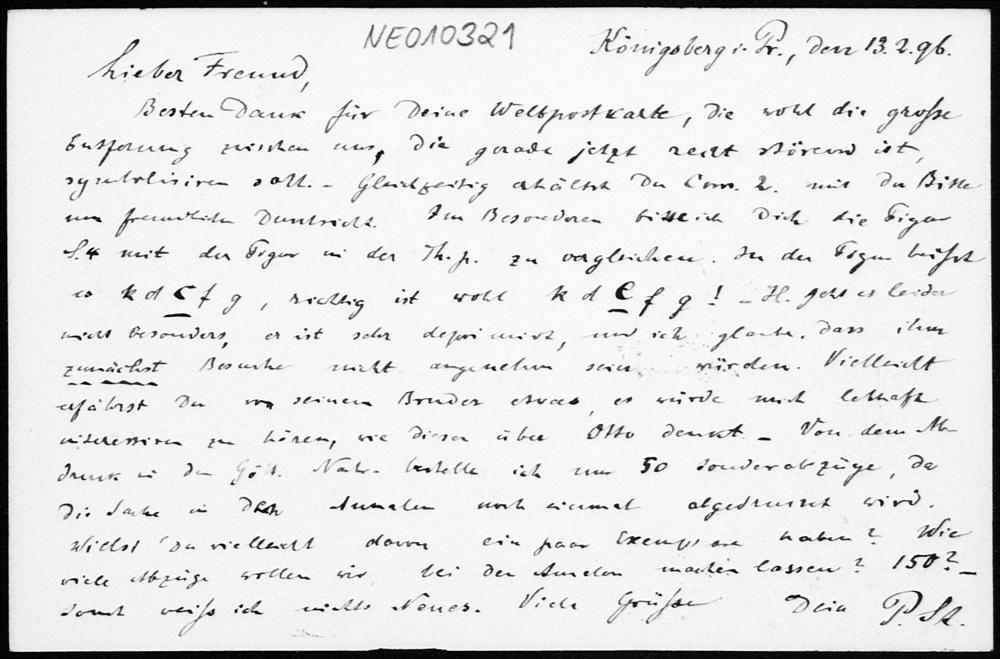 NEO10321
Königsberg i. Pr., den 13.2.96.
Lieber Freund,
Besten Dank für Deine Weltpostkarte, die wohl die grosse
Entfernung zwischen uns, die gerade jetzt recht störend ist,
symbolisiren soll. – Gleichzeitig erhältst Du Corr. 2. mit der Bitte
um freundliche Durchsicht. Im Besonderen bitte ich Dich die Figur
S. 4 mit der Figur in der zu vergleichen. In der Figur heisst
es k d c f g, richtig ist wohl k d e f g! – H. geht es leider
nicht besonders, er ist sehr deprimirt, und ich glaube, dass ihm
zunächst Besuche nicht angenehm sein würden. Vielleicht
erfährst Du von seinem Bruder etwas, es würde mich lebhaft
interessiren zu hören, wie dieser über Otto denkt. – Von dem Ab-
druck in den Gött. Nachr. bestelle ich nur 50 Sonderabzüge, da
die Sache in den Annalen noch einmal abgedruckt wird.
Willst Du vielleicht davon ein paar Exemplare haben? Wie
viele Abzüge wollen wir bei den Annalen machen lassen? 150? –
Sonst weiss ich nichts Neues. Viele Grüsse Dein P. St.